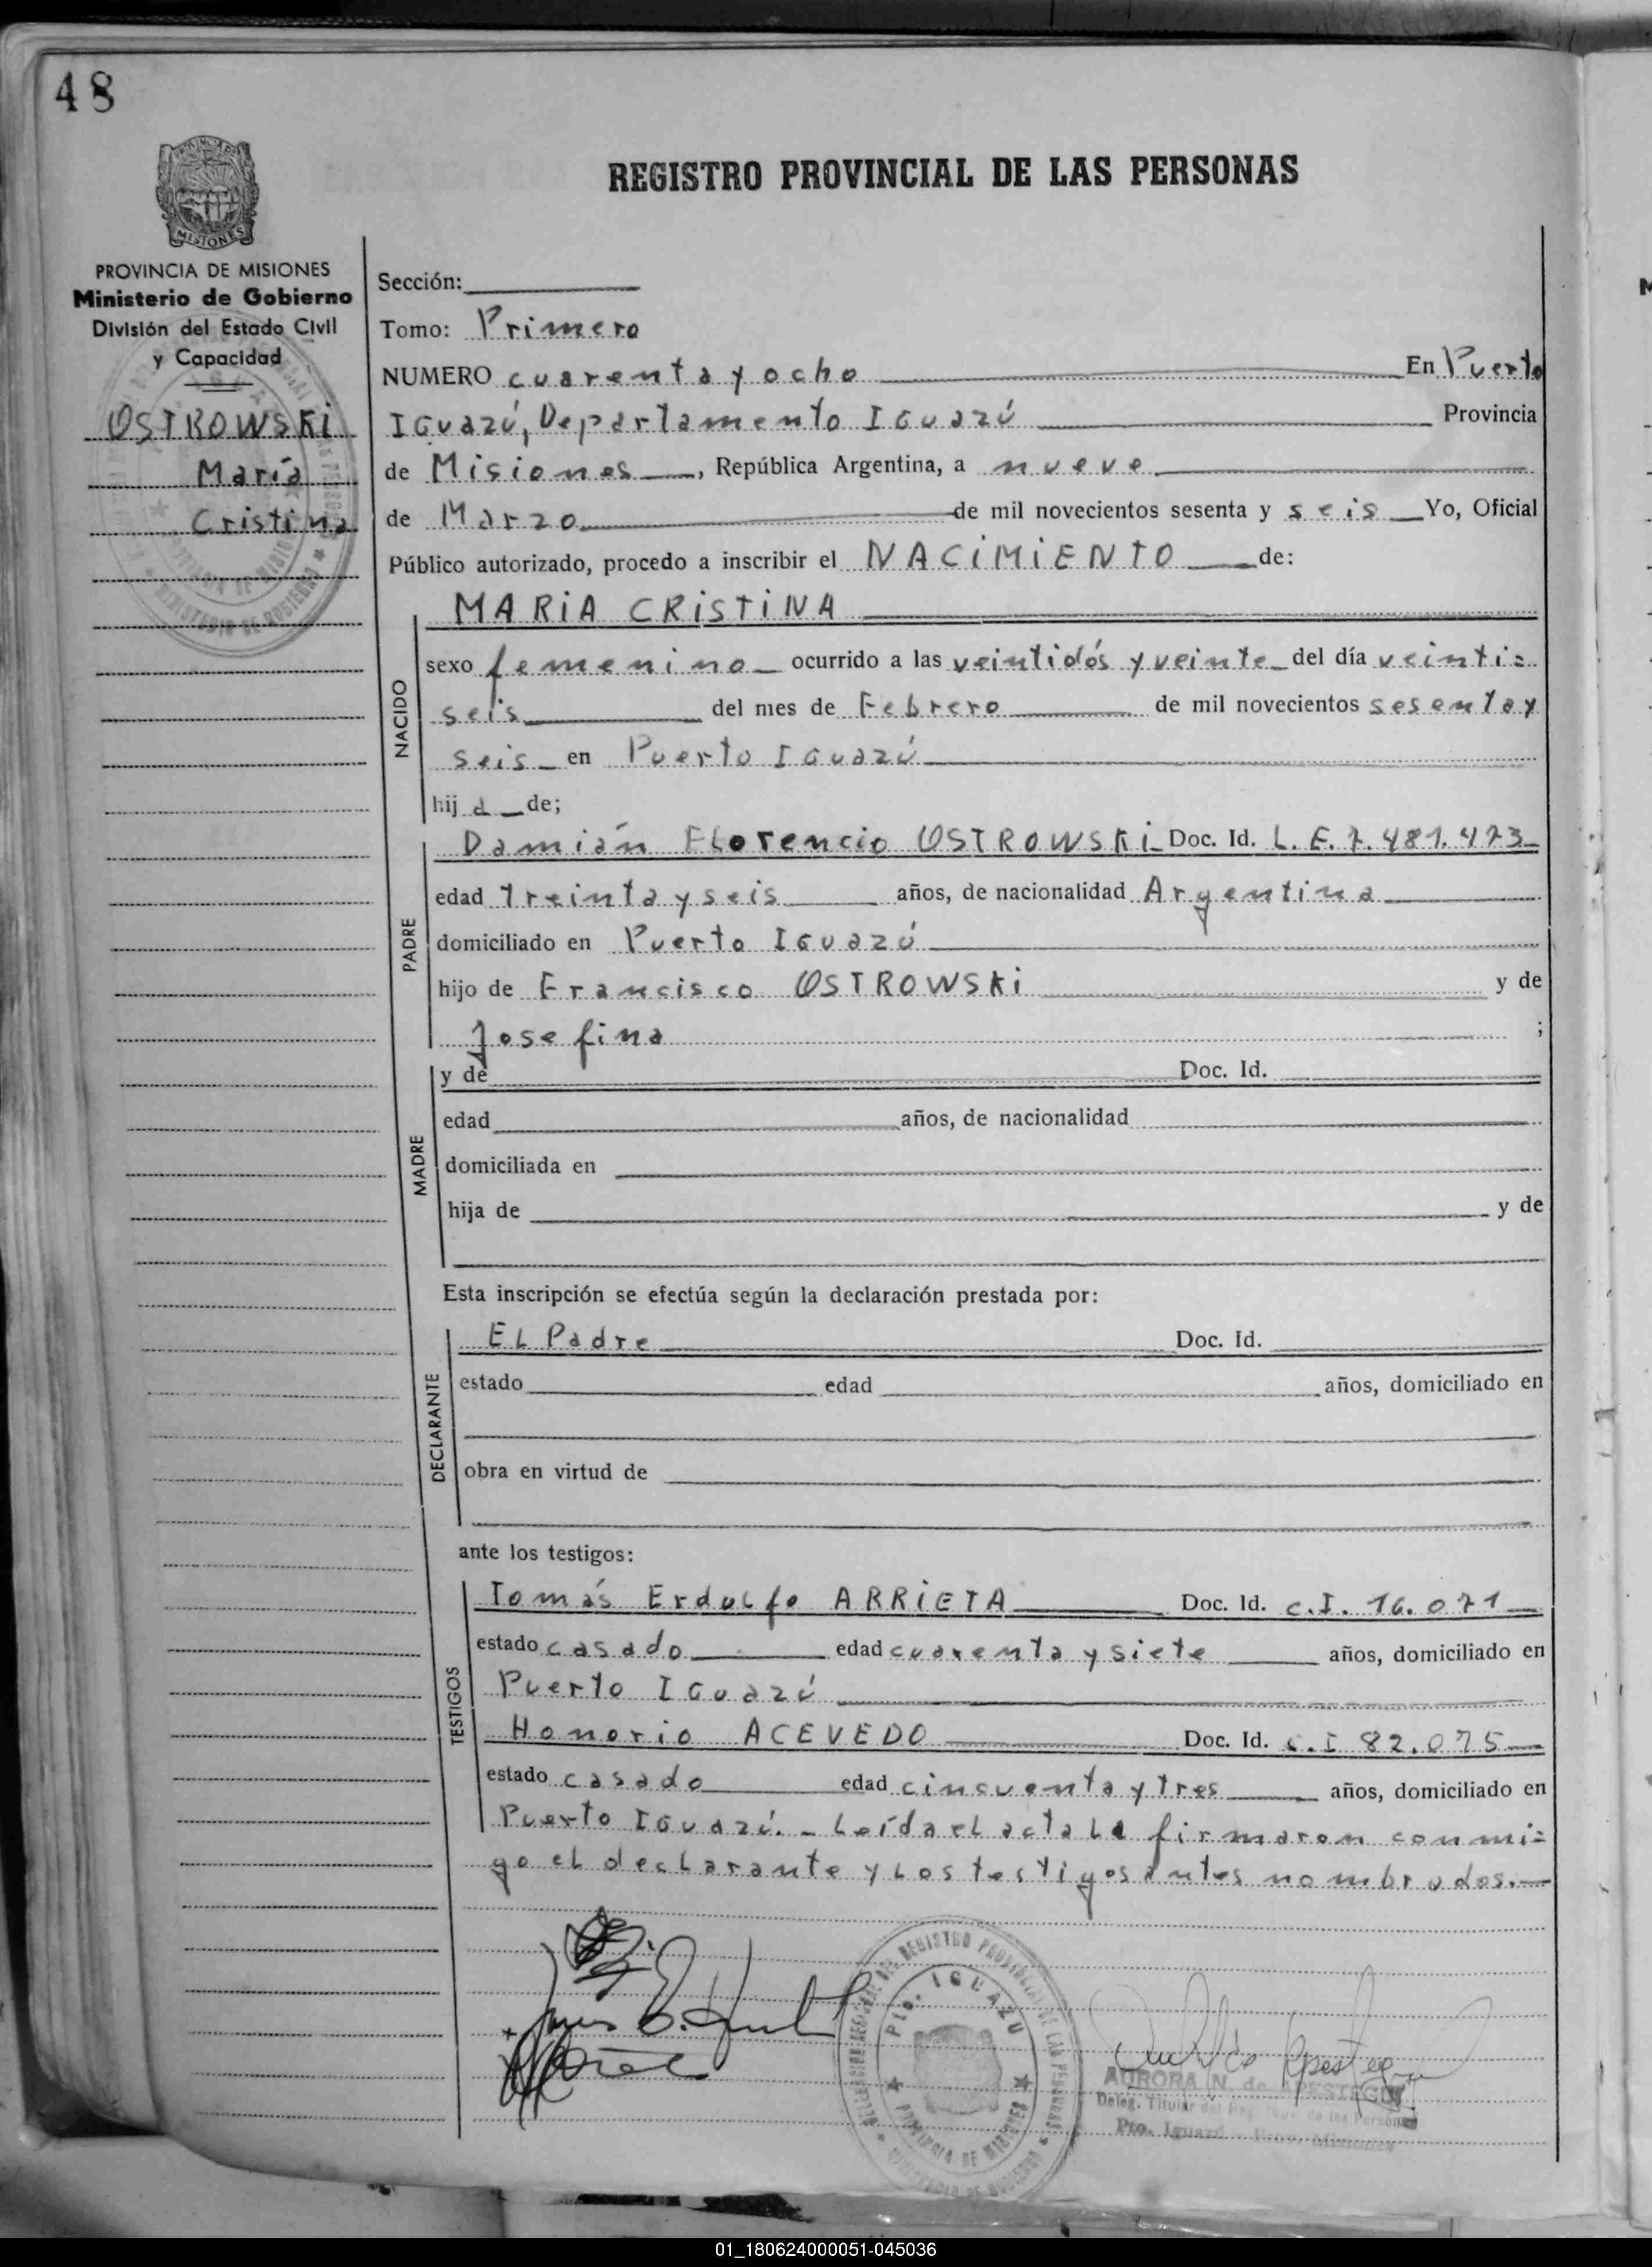 48
MISIONES
REGISTRO PROVINCIAL DE LAS PERSONAS
PROVINCIA DE MISIONES
Ministerio de Gobierno
División del Estado Civil
y Capacidad
OSTROWSKi
María
Cristina
Sección:
Tomo: Primero
NUMERO cuarenta y ocho En Puerto
IGuazú, Departamento IGuazú Provincia
de Misiones, República Argentina, a nueve
de Marzo de mil novecientos sesenta y seis Yo, Oficial
Público autorizado, procedo a inscribir el NACiMiENTO de:
MARiA CRiSTiNA
NACIDO
sexo femenino ocurrido a las veintidós y veinte del día veinti=
seis del mes de Febrero de mil novecientos sesenta y
seis en Puerto IGuazú
hija de;
PADRE
Damián Florencio OSTROWSKi Doc. Id. L. E. 7.481.473
edad treinta y seis años, de nacionalidad Argentina
domiciliado en Puerto IGuazú
hijo de Francisco OSTROWSKi y de
Josefina ;
MADRE
y de Doc. Id.
edad años, de nacionalidad
domiciliada en
hija de y de
Esta inscripción se efectúa según la declaración prestada por:
DECLARANTE
El Padre Doc. Id.
estado edad años, domiciliado en
obra en virtud de
ante los testigos:
TESTIGOS
Tomás Erdulfo ARRiETA Doc. Id. c.I. 16.071
estado casado edad cuarenta y siete años, domiciliado en
Puerto IGuazú
Honorio ACEVEDO Doc. Id. c.I 82.075
estado casado edad cincuenta y tres años, domiciliado en
Puerto IGuazú. - Leída el acta la firmaron conmi=
go el declarante y los testigos antes nombrados.-
REGISTRO PROVINCIAL DE LAS PERSONAS
Pto. IGUAZU
PROVINCIA DE MISIONES
AURORA N. de APESTEGUI
Deleg. Titular del Reg. Prov. de las Personas
Pto. Iguazú - Prov. Misiones
01_180624000051-045036